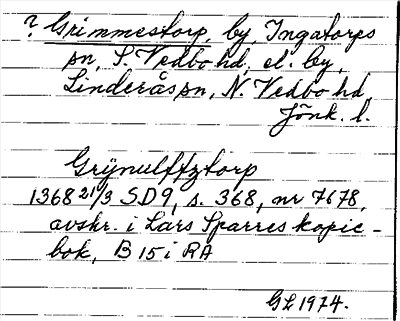 ? Grimmestorp, by, Ingatorps
sn, S. Vedbo hd, el. by,
Linderås sn, N. Vedbo hd,
Jönk. l.
Grijnulfftztorp
1368 21/3 SD9, s. 368, nr 7678,
avskr. i Lars Sparres kopie-
bok, B 15 i RA
GL 1974.